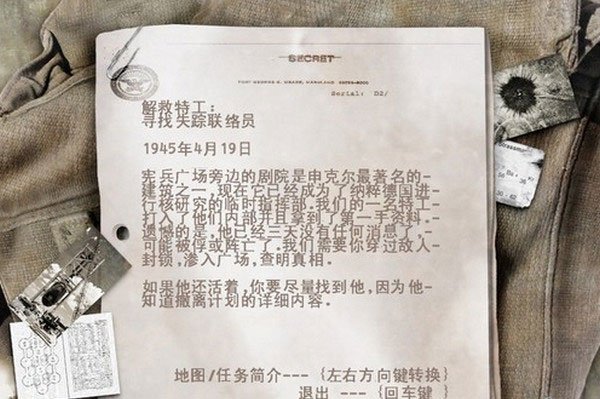 SECRET
FORT GEORGE G. MEADE, MARYLAND
Serial: D2/
解救特工：
寻找失踪联络员
1945年4月19日
宪兵广场旁边的剧院是申克尔最著名的-
建筑之一.现在它已经成为了纳粹德国进-
行核研究的临时指挥部.我们的一名特工-
打入了他们内部并且拿到了第一手资料.-
遗憾的是,他已经三天没有任何消息了,-
可能被俘或阵亡了.我们需要你穿过敌人-
封锁,渗入广场,查明真相.
如果他还活着,你要尽量找到他,因为他-
知道撤离计划的详细内容.
地图/任务简介--- {左右方向键转换}
退出 --- {回车键 }